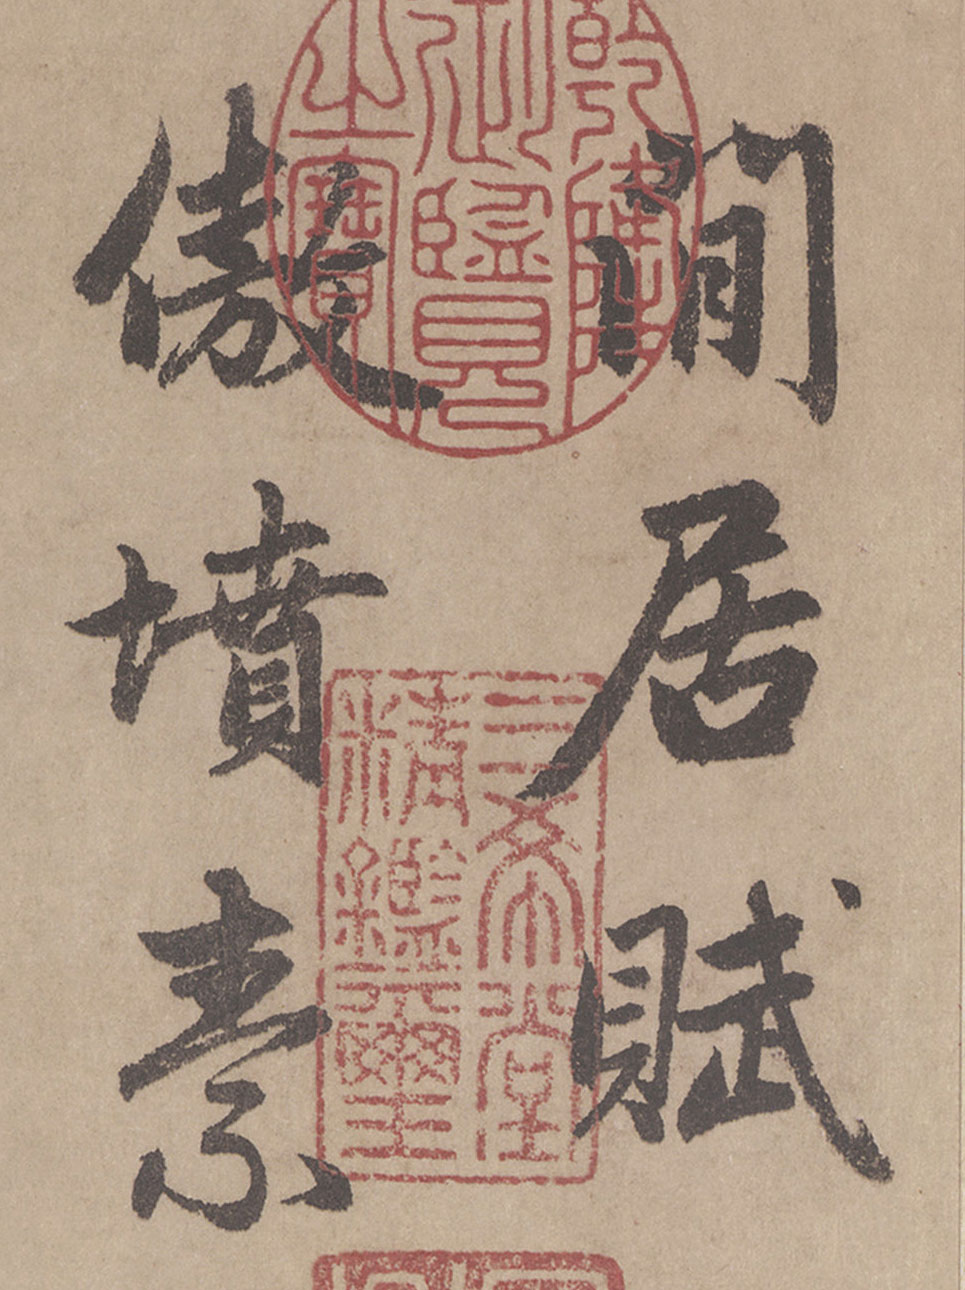 閒居賦
傲墳素
乾隆
御覽
之寶
三希堂
精鑑璽